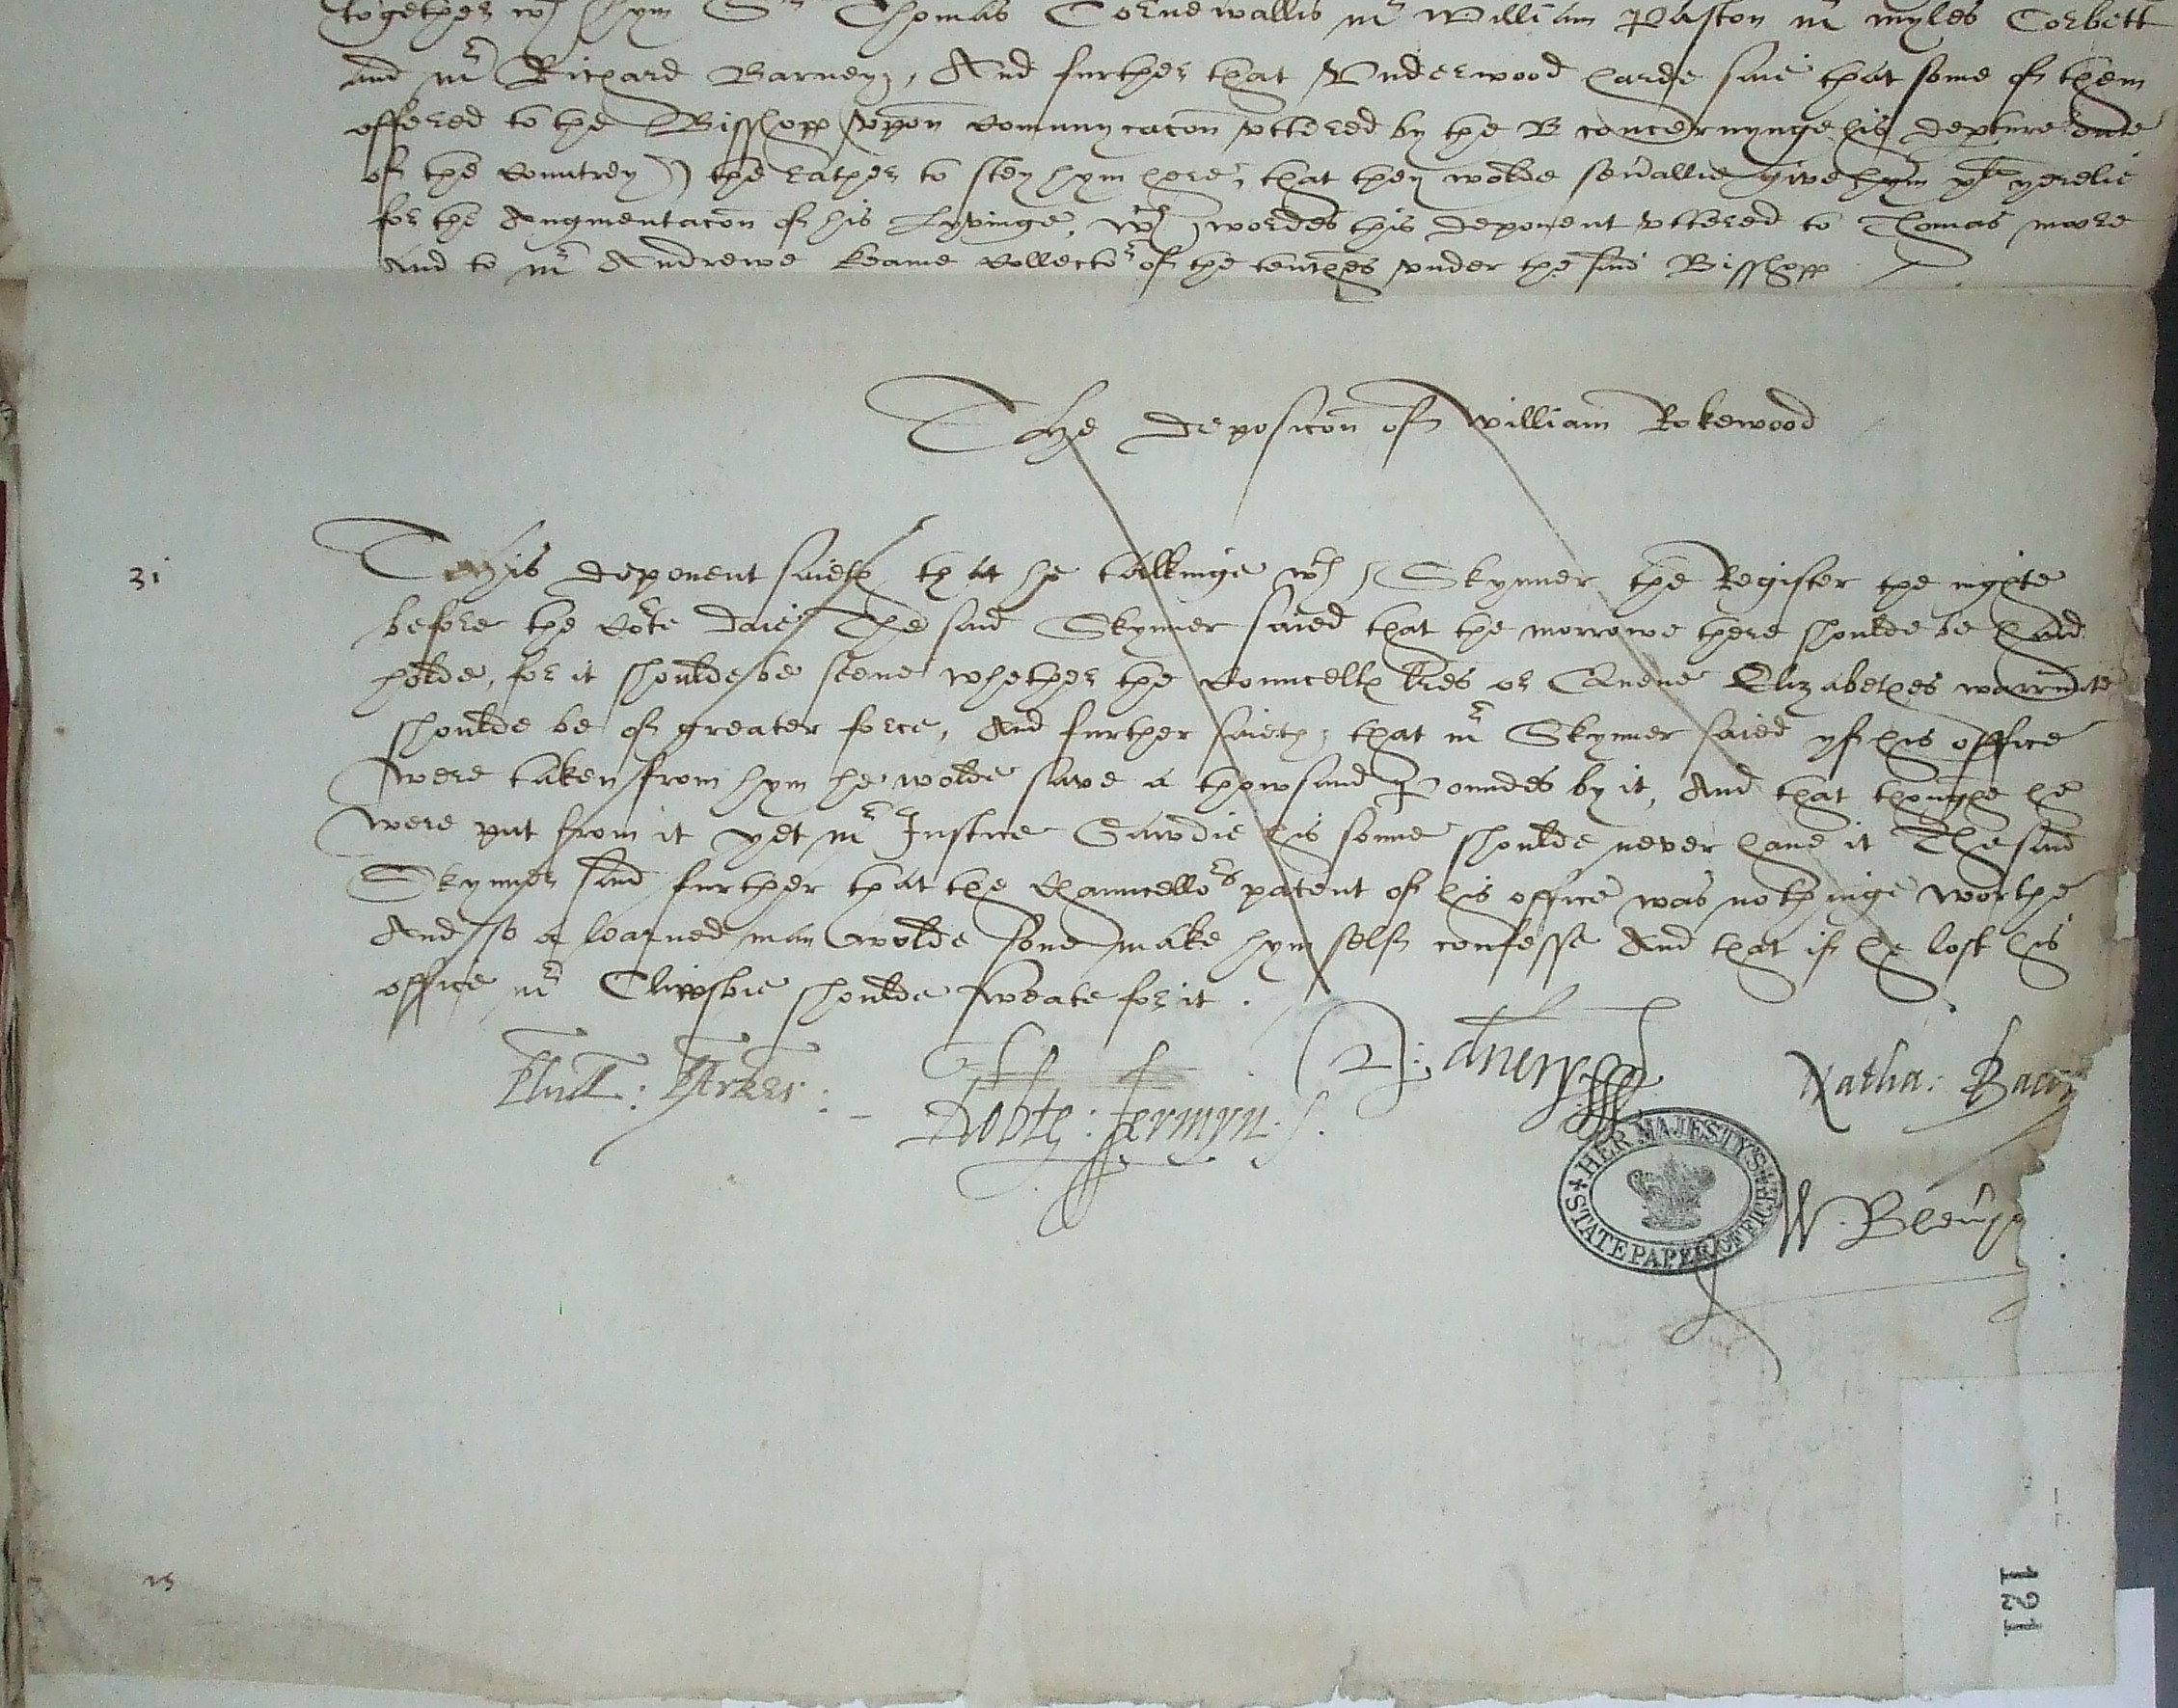 together wth hym Sr Thomas Cornewallis mr William Paston mr myles Corbett
and mr Richard Barney, And further that Vnderwood harde saie that some of them
offered to the Bisshopp (vpon comunycacon vttered by the B concernynge his depture oute
of the countrey) the rather to stey hym here, that they wolde seuallie give hym xli yerelie
for the Augmentacon of his Lyvinge, wch wordes this deponent vttered to Thomas moore
And to mr Andrewe Keame collector of the tenthes vnder the said Bisshopp
The deposicon of William Rokewood
31
This deponent saieth that he talkinge wth Skynner the Register the nyghte
before the Corte daie The said Skynner saied that the morrowe there shoulde be hard
holde, for it shoulde be seene whether the Councells lres or Quene Elizabethes warrante
shoulde be of greater force, And further saieth, that mr Skynner saied yf his office
were taken from hym he wolde save a thowsand Poundes by it, And that thoughe he
were put from it yet mr Justice Gawdie his sonne shoulde never haue it The said
Skynner said further that the Chauncellors patent of his office was nothinge worthe
And so a learned man wolde sone make hym self confesse And that if he lost his
office mr Clipsbie shoulde sweate for it .
Robte : Jermyn .
Natha: Bacon
W. Bleu
HER MAJESTY'S STATE PAPER OFFICE
121